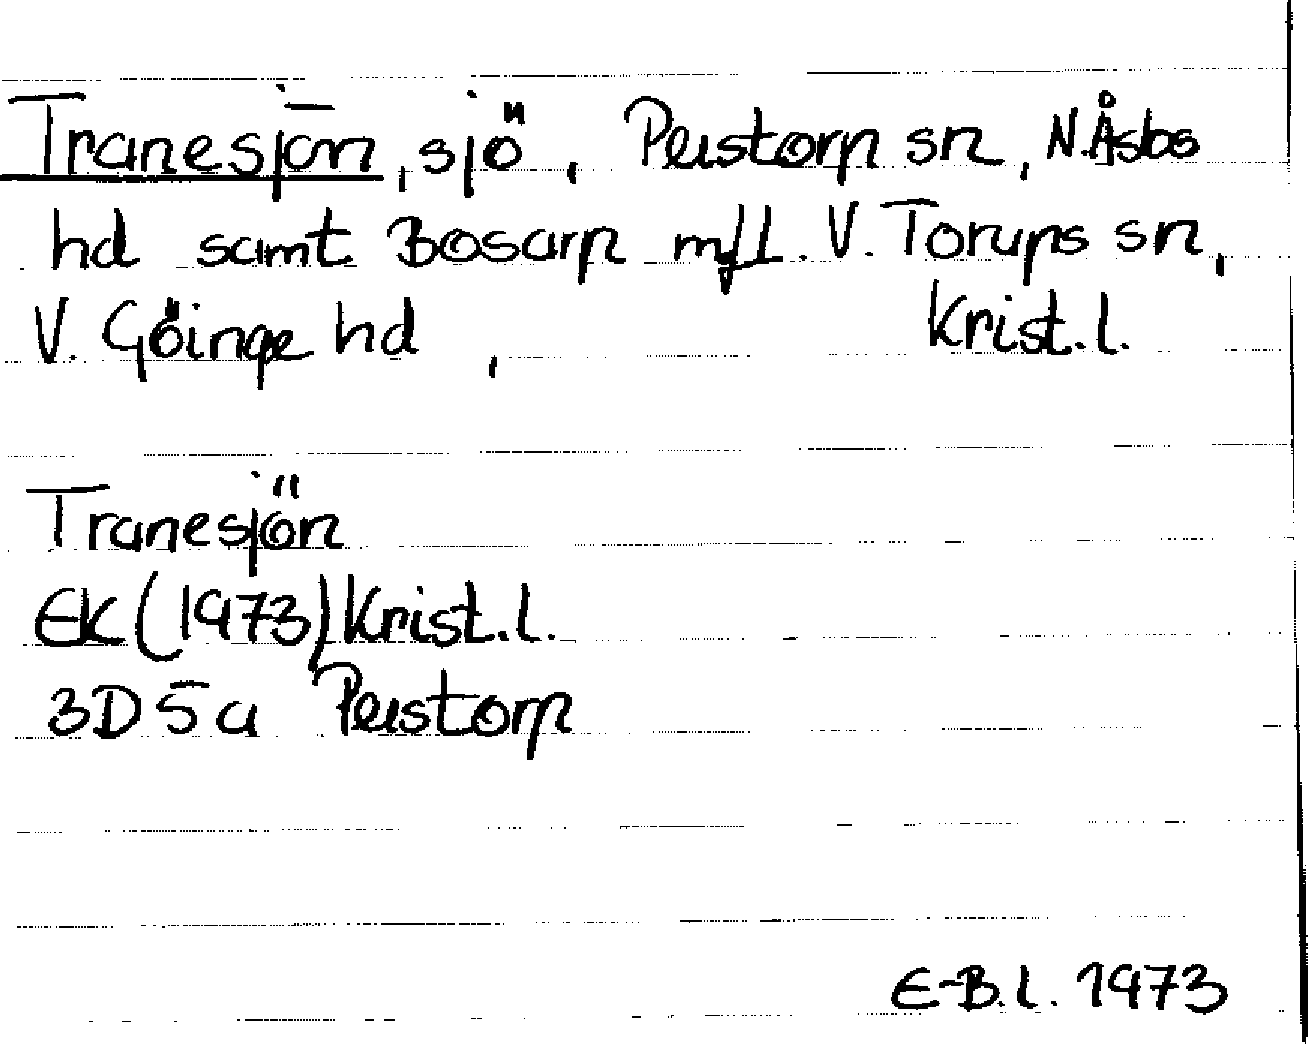 Tranesjön, sjö, Perstorp sn, N. Åsbo
hd samt Bosarp m fl. V. Torups sn,
V. Göinge hd, Krist. l.
Tranesjön
EK (1973) Krist. l.
3D5a Perstorp
E-B. l. 1973